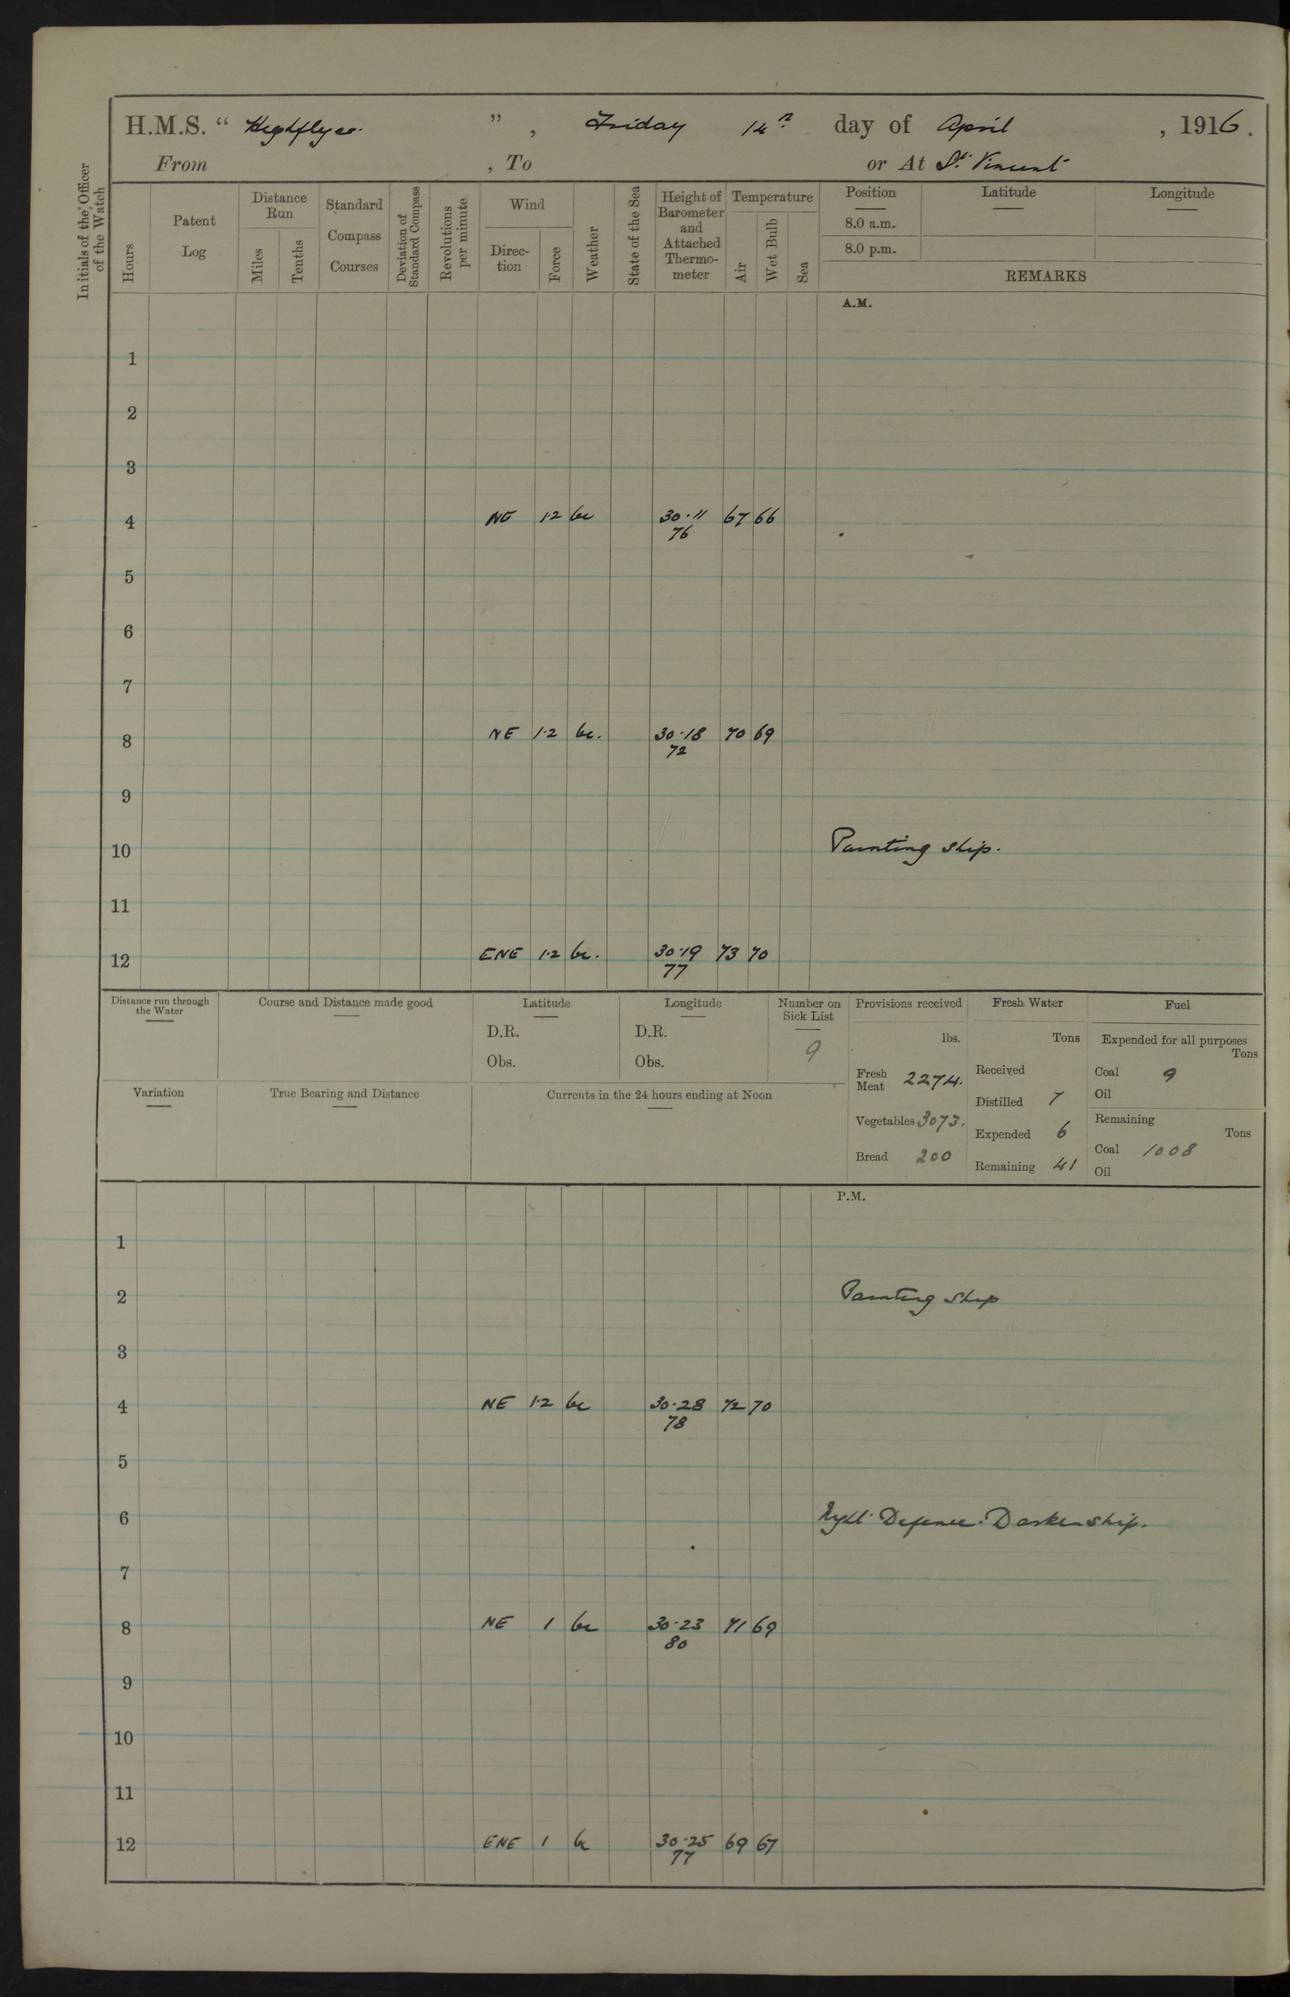 H.M.S. " Highflyer. " , Friday 14th day of April , 1916.
From , To or At St. Vincent
Initials of the Officer of the Watch
Hours
Patent Log
Distance Run
Miles
Tenths
Standard Compass Courses
Deviation of Standard Compass
Revolutions per minute
Wind
Direction
Force
Weather
State of the Sea
Height of Barometer and Attached Thermometer
Temperature
Air
Wet Bulb
Sea
Position Latitude Longitude
8.0 a.m.
8.0 p.m.
REMARKS
A.M.
1
2
3
4 NE 1·2 bc 30·11 67 66
76
5
6
7
8 NE 1·2 bc. 30·18 70 69
72
9
10 Painting ship.
11
12 ENE 1·2 bc. 30·19 73 70
77
Distance run through the Water
Course and Distance made good
Latitude
D.R.
Obs.
Longitude
D.R.
Obs.
Number on Sick List
9
Variation
True Bearing and Distance
Currents in the 24 hours ending at Noon
Provisions received
lbs.
Fresh Meat 2274.
Vegetables 3073.
Bread 200
Fresh Water
Tons
Received
Distilled 7
Expended 6
Remaining 41
Fuel
Expended for all purposes
Tons
Coal 9
Oil
Remaining
Tons
Coal 1008
Oil
P.M.
1
2 Painting ship
3
4 NE 1·2 bc 30·28 72 70
78
5
6 Night Defence. Darken ship.
7
8 NE 1 bc 30·23 71 69
80
9
10
11
12 ENE 1 bc 30·25 69 67
77